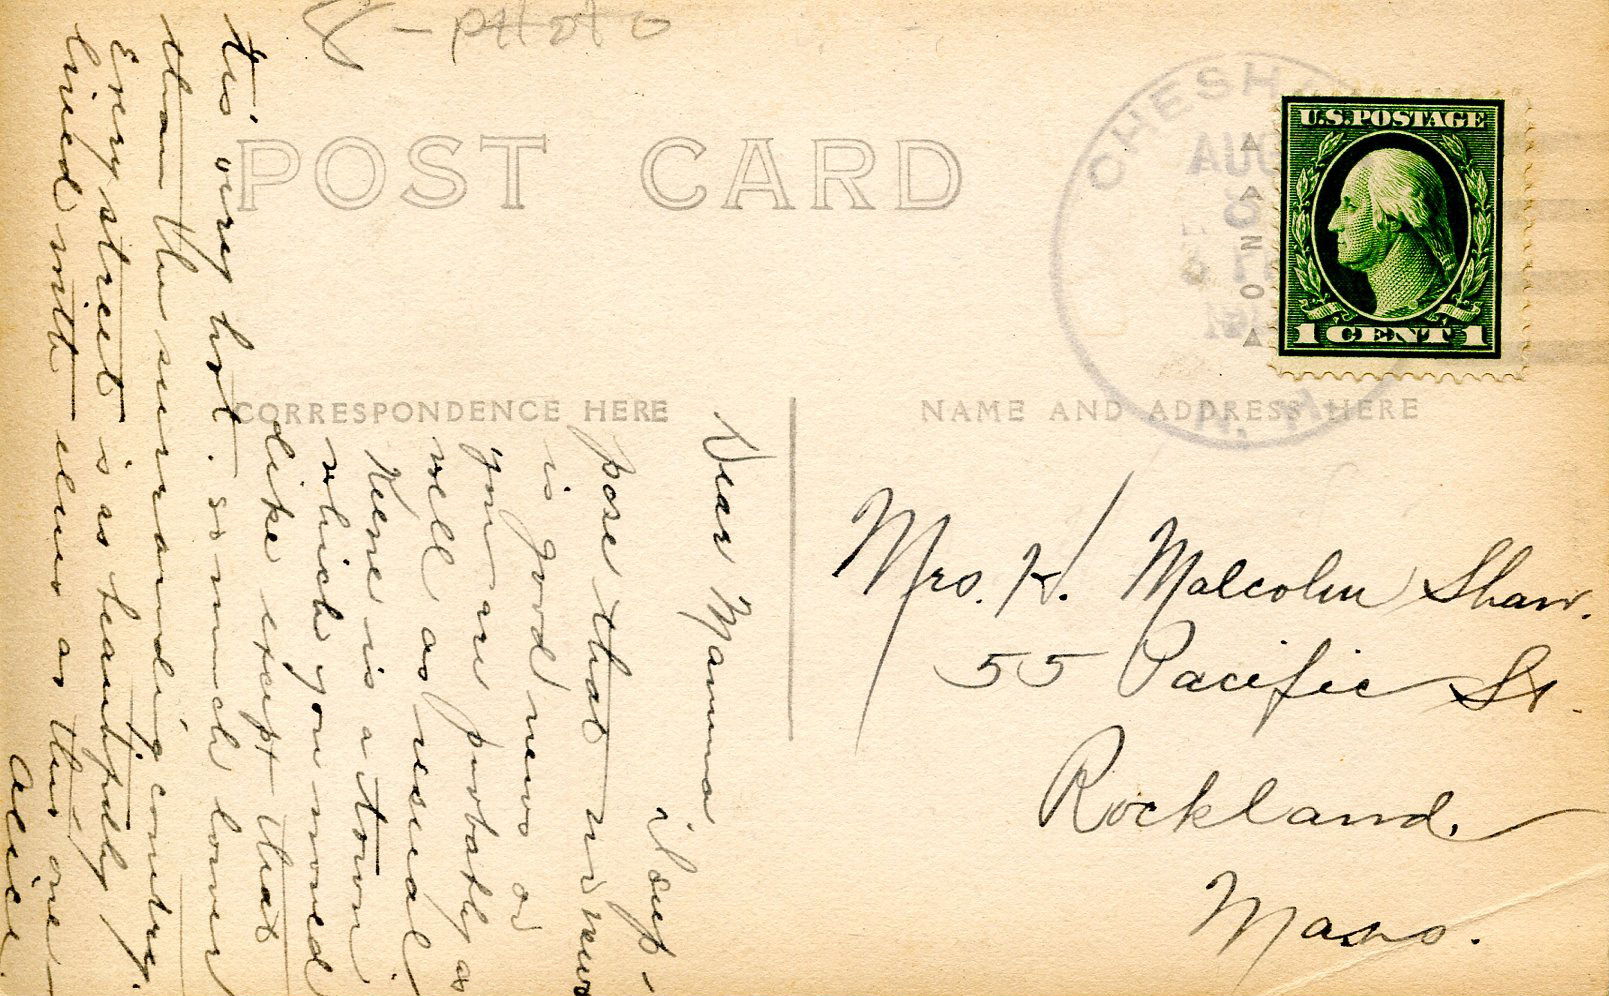 K-photo
POST CARD
CHESH
AUG
8
7
191
N.H.
N
O
U.S. POSTAGE
1 CENT 1
CORRESPONDENCE HERE
NAME AND ADDRESS HERE
Dear Mamma
I sup-
pose that no news
is good news or
you are probably as
well as usual
Keene is a town
which you would
like except that
tis very hot. so much lower
than the surrounding country.
Every street is as beautifully
lined with elms as this one
Alice.
Mrs. H. Malcolm Shaw.
55 Pacific St.
Rockland,
Mass.